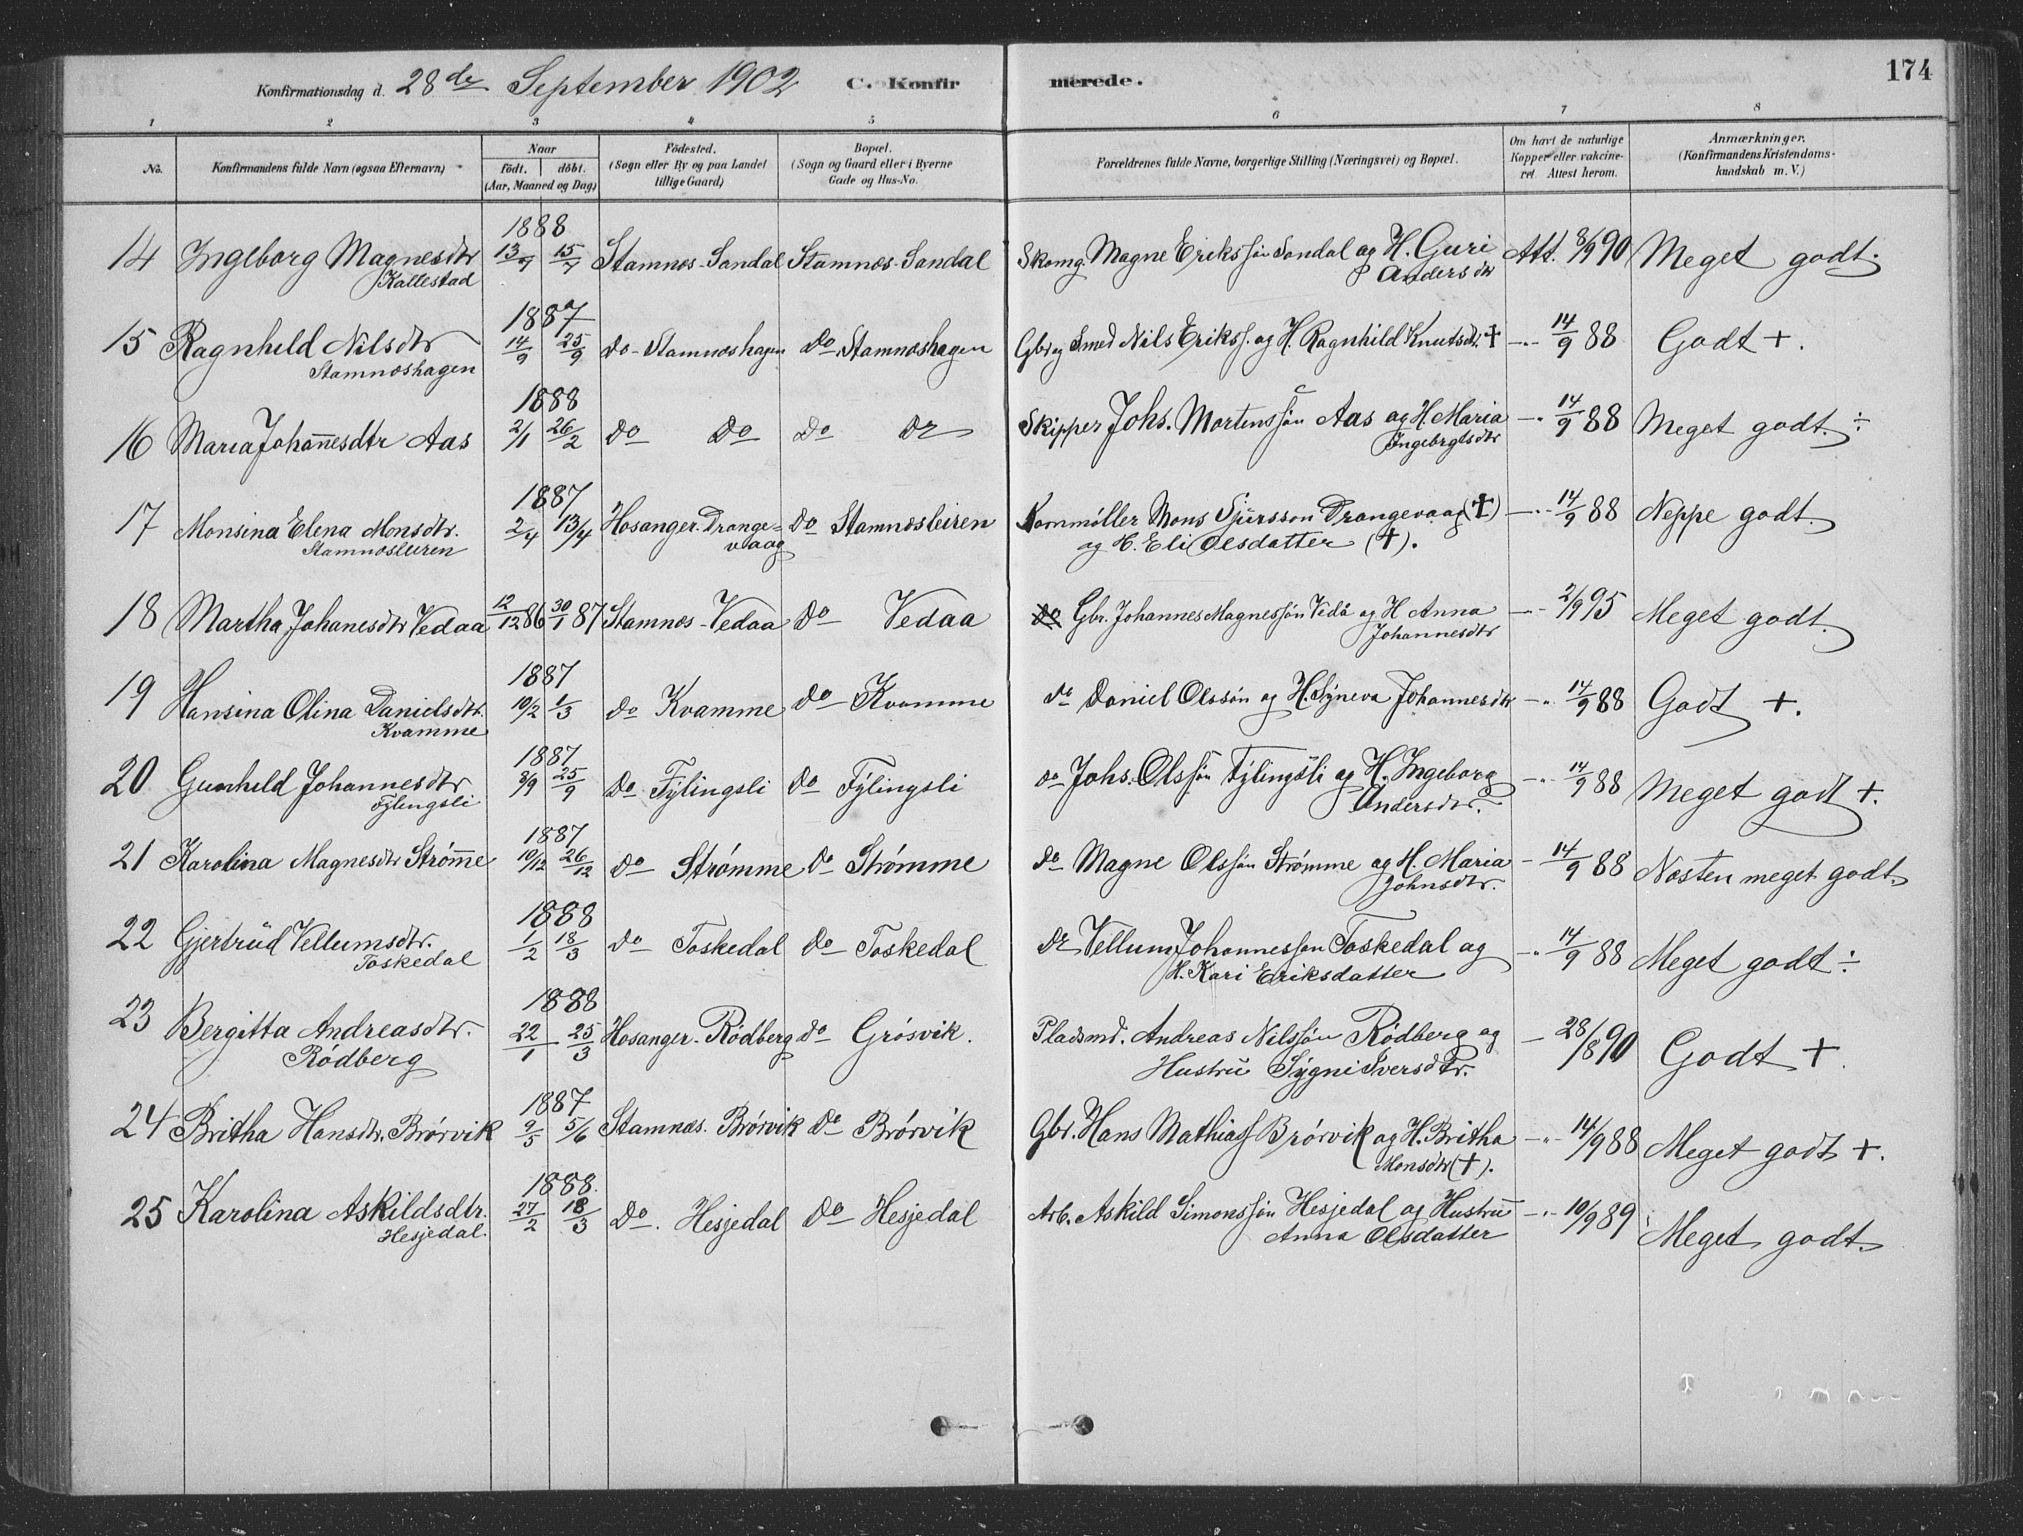 Konfirmationsdag d. 28de September 1902 C. Konfir merede. 174
1 2 3 4 5 6 7 8
No. Konfirmandens fulde Navn (ogsaa Efternavn) Naar födt. döbt. (Aar, Maaned og Dag) Födested. (Sogn eller By og paa Landet tillige Gaard) Bopæl. (Sogn og Gaard eller i Byerne Gade og Hus-No. Forældrenes fulde Navne, borgerlige Stilling (Næringsvei) og Bopæl. Om havt de naturlige Kopper eller vakcineret. Attest herom. Anmærkninger. (Konfirmandens Kristendomskundskab m. V.)
1888
14 Ingeborg Magnesdtr 13/7 15/7 Stamnes-Sandal Stamnes-Sandal Skomg. Magne Erikssön Sandal og H. Guri Att. 8/9 90 Meget godt.
Kallestad Andersdtr
1887
15 Ragnhild Nilsdtr 14/9 25/9 do - Stamneshagen do Stamneshagen Gbr og Smed Nils Erikss. og H. Ragnhild Knutsdtr. † -"- 14/9 88 Godt +.
Stamneshagen
1888
16 Maria Johannesdtr Aas 2/1 26/2 do do do do Skipper Johs. Mortenssön Aas og H. Maria -"- 14/9 88 Meget godt. ÷
Ingebrgtsdtr
1887
17 Monsina Elena Monsdtr. 2/4 13/4 Hosanger. Drange= do Stamnesleiren Kornmøller Mons Sjursson Drangevaag (†) -"- 14/9 88 Neppe godt.
Stamnesleiren vaag og H. Eli Olsdatter (†).
18 Martha Johanesdtr Vedaa 12/12 86 30/1 87 Stamnes - Vedaa do Vedaa do Gbr. Johannes Magnessön Vedå og H Anna -"- 2/9 95 Meget godt.
Johannesdtr
1887
19 Hansina Olina Danielsdtr. 10/2 1/3 do Kvamme do Kvamme do Daniel Olssön og H. Syneva Johannesdtr -"- 14/9 88 Godt +.
Kvamme
1887
20 Gunhild Johannesdtr 8/9 25/9 do Fylingsli do Fylingsli do Johs. Olssön Fylingsli og H. Ingeborg -"- 14/9 88 Meget godt +.
Fylingsli Andersdtr.
1887
21 Karolina Magnesdtr Strømme 10/12 26/12 do Strømme do Strømme do Magne Olssön Strømme og H. Maria - 14/9 88 Næsten meget godt.
Johnsdtr.
1888
22 Gjertrud Vellumsdtr. 1/2 18/3 do Toskedal do Toskedal do Vellum Johannesson Toskedal og -"- 14/9 88 Meget godt ÷
Toskedal H. Kari Eriksdatter
1888
23 Bergitta Andreasdtr. 22/1 25/3 Hosanger. Rödberg do Grósvik. Pladsmd. Andreas Nilssön Rödberg og - 28/8 90 Godt +.
Rödberg Hustru Sygni Iversdtr.
1887
24 Britha Hansdtr. Brörvik 9/5 5/6 Stamnes. Brörvik do Brörvik Gbr. Hans Mathiass Brörvik og H. Britha -"- 14/9 88 Meget godt +.
Monsdtr (†).
1888.
25 Karolina Askildsdtr. 27/2 18/3 do. Hesjedal do Hesjedal Arb. Askild Simonssön Hesjedal og Hustru -"- 10/9 89 Meget godt.
Hesjedal. Anna Olsdatter